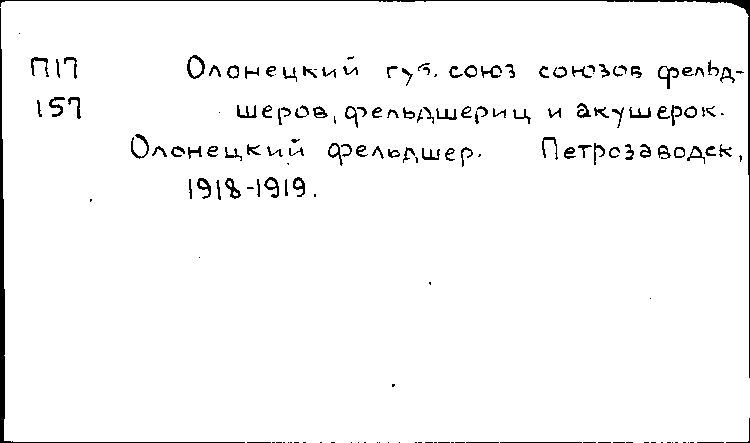 П17 Олонецкий губ. союз союзов фельд-
157 шеров, фельдшериц и акушерок.
Олонецкий фельдшер. Петрозаводск,
1918-1919.